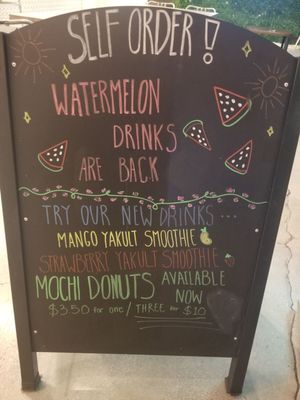 SELF ORDER!
WATERMELON
DRINKS
ARE BACK
TRY OUR NEW DRINKS ...
MANGO YAKULT SMOOTHIE
STRAWBERRY YAKULT SMOOTHIE
MOCHI DONUTS AVAILABLE
NOW
$3.50 for one / THREE for $10